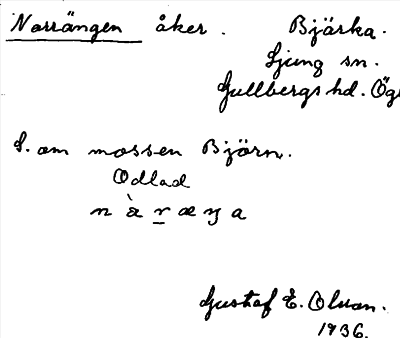 Norrängen åker. Bjärka.
Ljung sn.
Gullbergs hd. Ög
S. om mossen Björn.
Odlad
n à r æ ŋ a
Gustaf E. Olson.
1936.